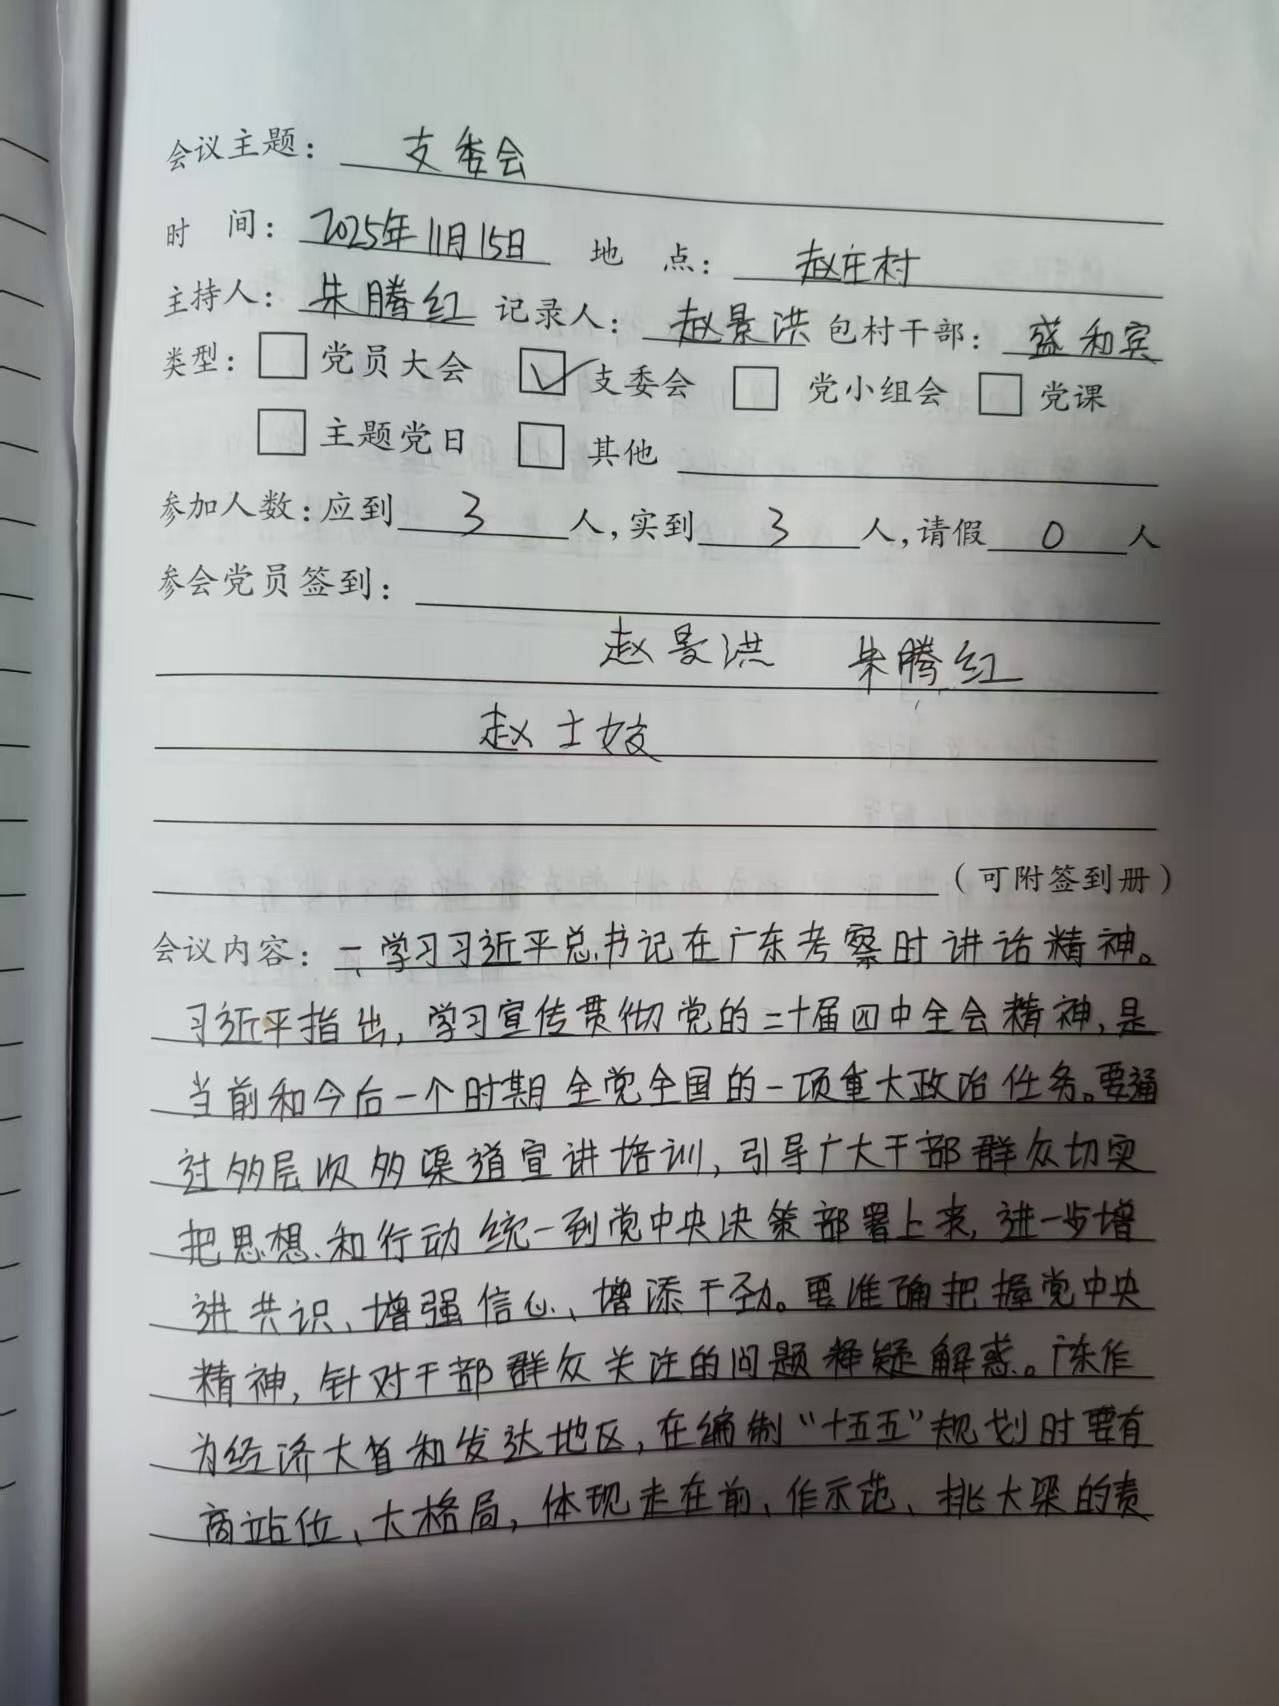 会议主题： 支委会
时 间： 2025年11月15日 地 点： 赵庄村
主持人： 朱腾红 记录人： 赵景洪 包村干部： 盛和宾
类型： □ 党员大会 ☑ 支委会 □ 党小组会 □ 党课
□ 主题党日 □ 其他
参加人数：应到 3 人，实到 3 人，请假 0 人
参会党员签到：
赵景洪 朱腾红
赵士姣
（可附签到册）
会议内容：一、学习习近平总书记在广东考察时讲话精神。
习近平指出，学习宣传贯彻党的二十届四中全会精神，是
当前和今后一个时期全党全国的一项重大政治任务。要通
过多层次多渠道宣讲培训，引导广大干部群众切实
把思想、和行动统一到党中央决策部署上来，进一步增
进共识、增强信心、增添干劲。要准确把握党中央
精神，针对干部群众关注的问题释疑解惑。广东作
为经济大省和发达地区，在编制“十五五”规划时要有
高站位、大格局，体现走在前、作示范、挑大梁的责